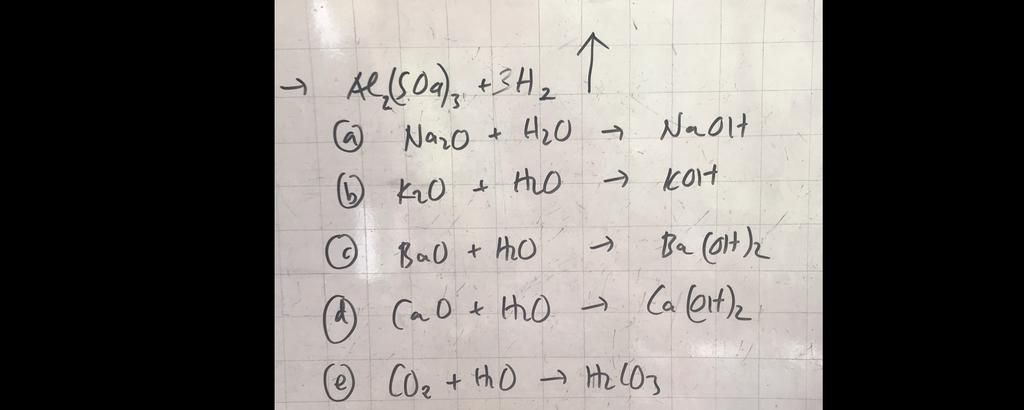 → Al₂(SO₄)₃ + 3H₂ ↑
ⓐ Na₂O + H₂O → NaOH
ⓑ K₂O + H₂O → KOH
ⓒ BaO + H₂O → Ba(OH)₂
ⓓ CaO + H₂O → Ca(OH)₂
ⓔ CO₂ + H₂O → H₂CO₃